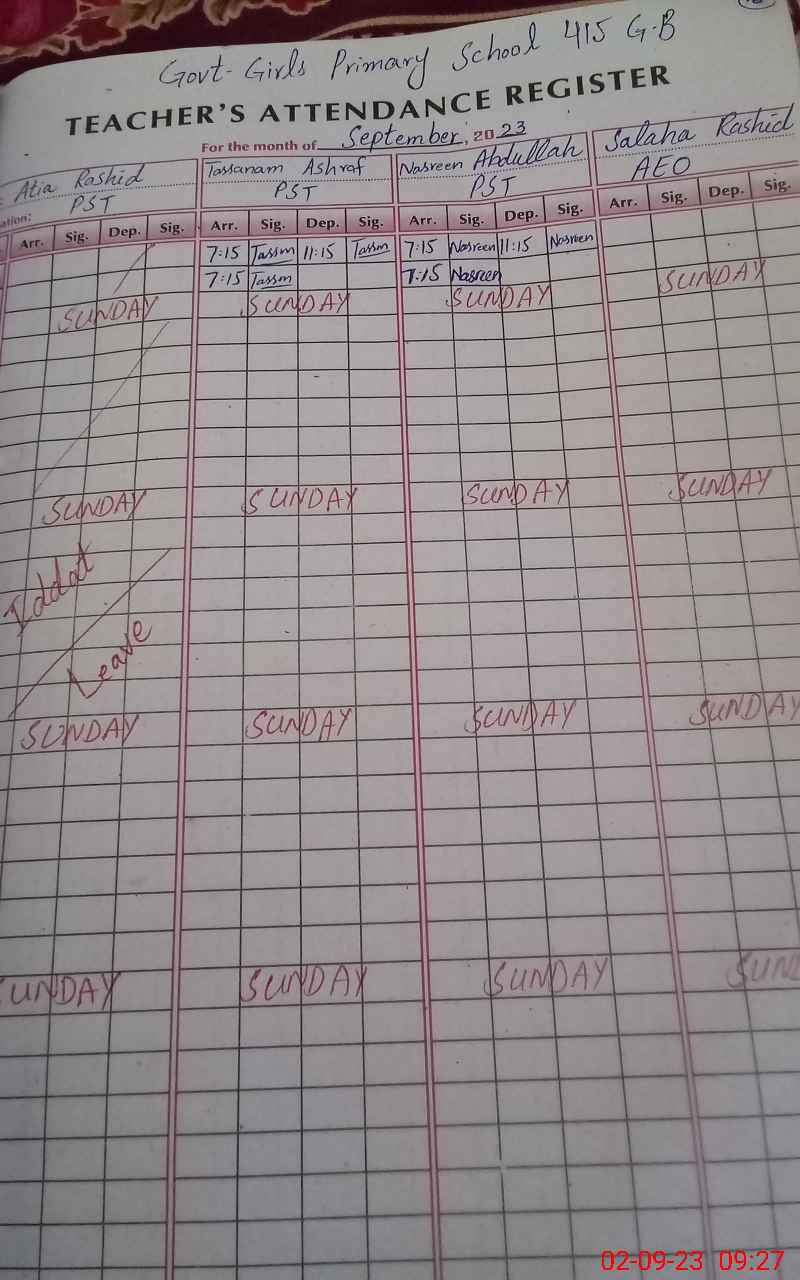 Govt- Girls Primary School 415 G.B
TEACHER'S ATTENDANCE REGISTER
For the month of September, 2023
Atia Rashid Tassanam Ashraf Nasreen Abdullah Salaha Rashid
PST PST PST AEO
ation:
Arr. Sig. Dep. Sig. Arr. Sig. Dep. Sig. Arr. Sig. Dep. Sig. Arr. Sig. Dep. Sig.
7:15 Tassm 11:15 Tassm 7:15 Nasreen 11:15 Nasreen
7:15 Tassm 7:15 Nasreen
SUNDAY SUNDAY SUNDAY SUNDAY
SUNDAY SUNDAY SUNDAY SUNDAY
Iddat
Leave
SUNDAY SUNDAY SUNDAY SUNDAY
SUNDAY SUNDAY SUNDAY SUND
02-09-23 09:27